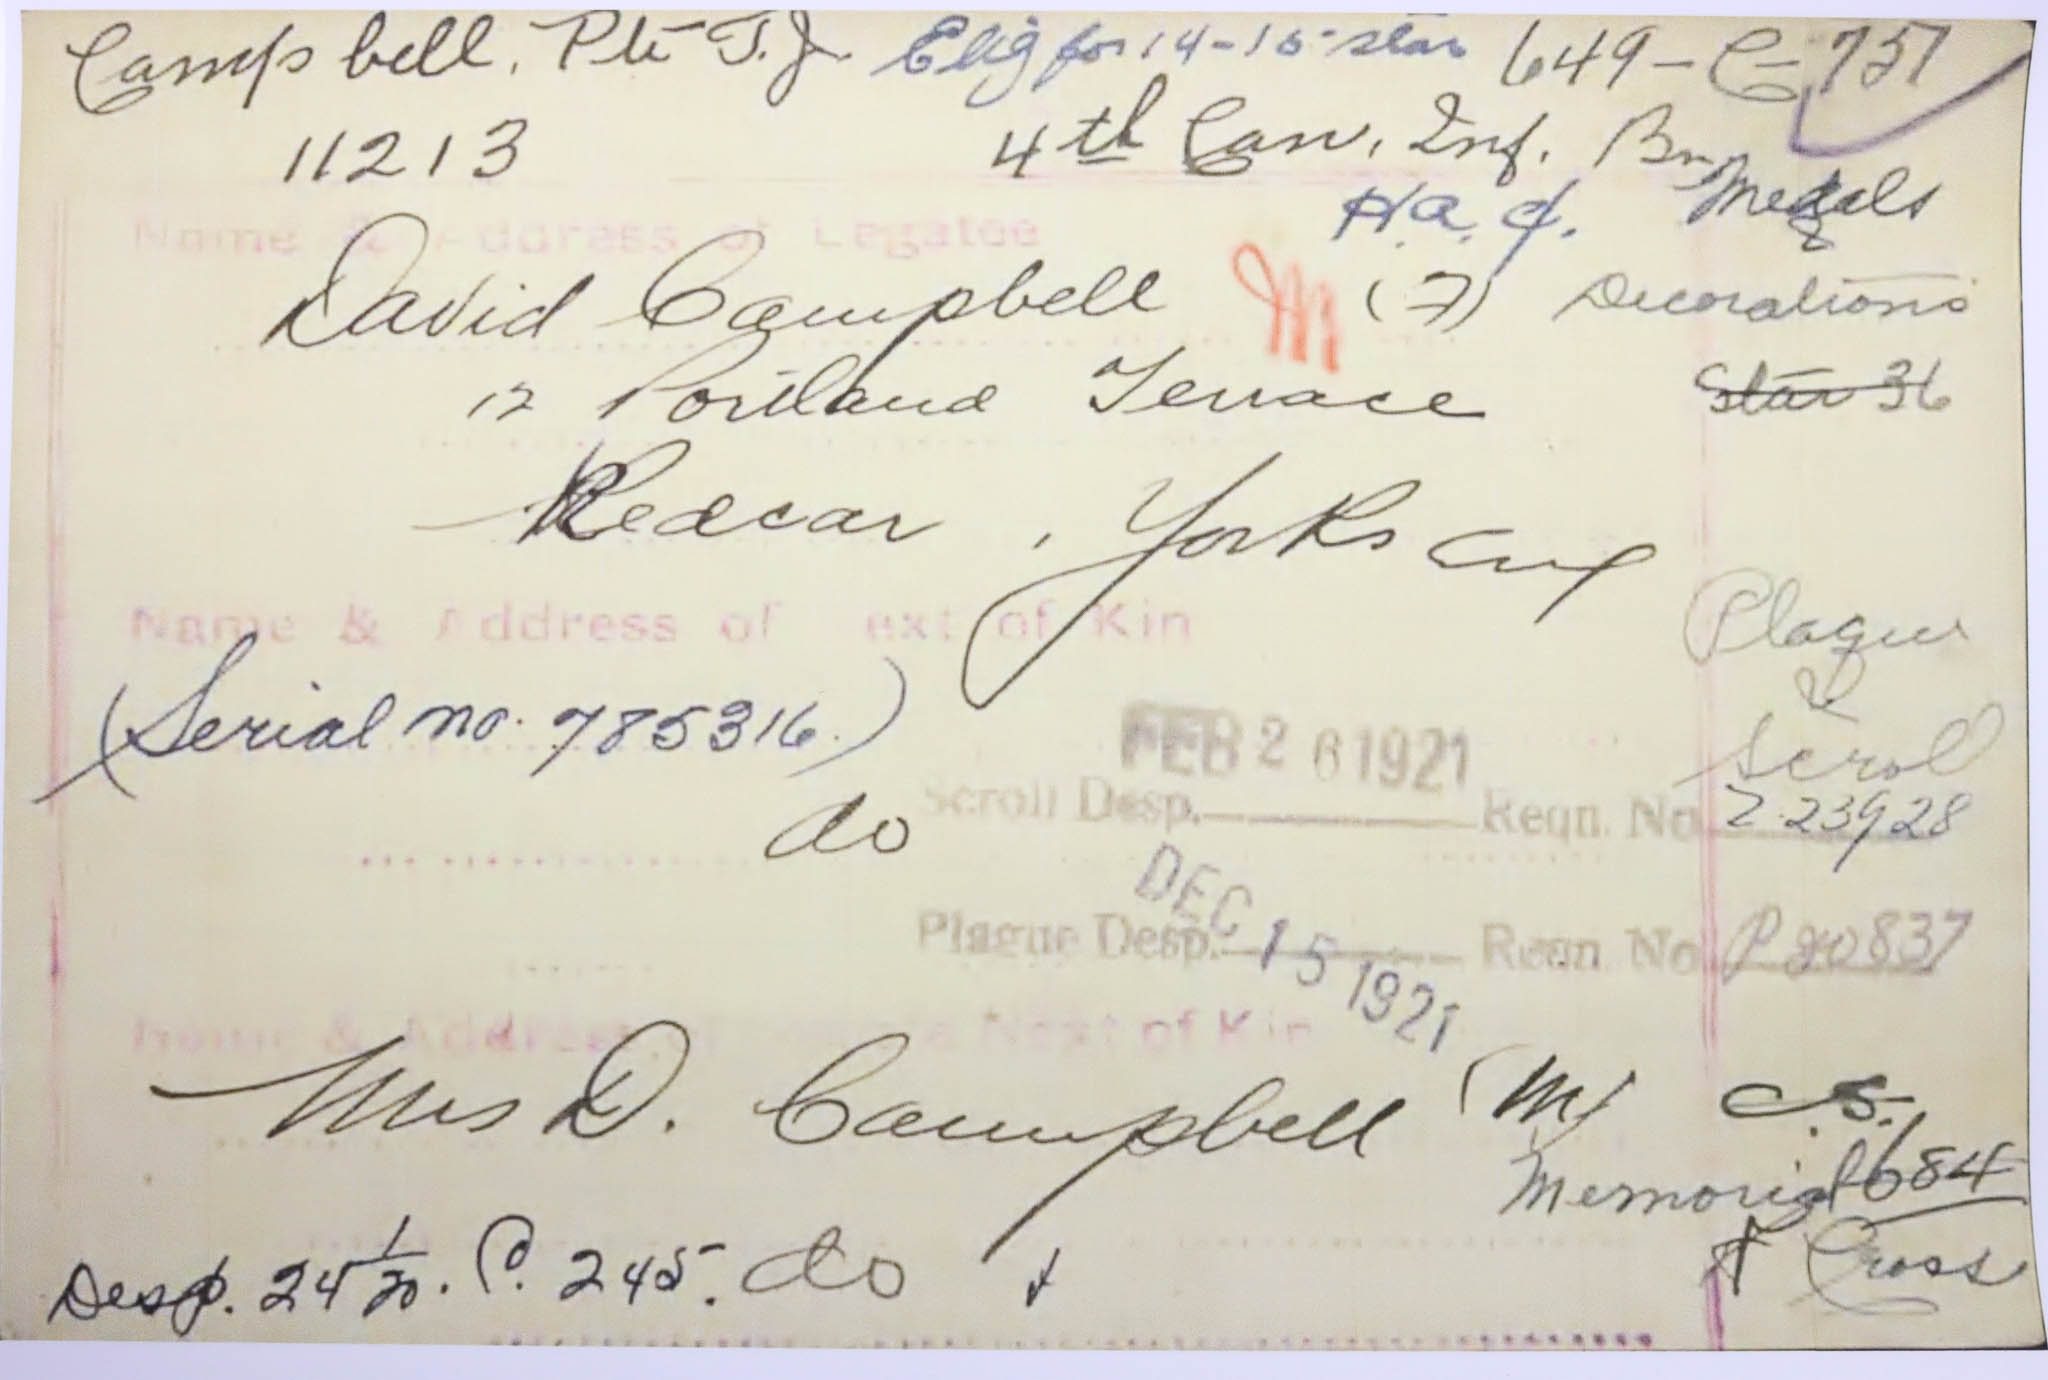 Campbell, Pte T.J. Elig for 14-15 star 649-C-757
11213 4th Can. Inf. Bn
Medals
Name & Address of Legatee
David Campbell M (F) Decorations
12 Portland Terrace Star 36
Redcar, Yorks Eng
Name & Address of ext of Kin
Plaque
&
Scroll
(Serial no. 785316.)
FEB 2 6 1921
do Scroll Desp. Reqn. No Z.23928
DEC 15 1921
Plaque Desp. Reqn. No P 20837
Name & Address of Next of Kin
Mrs D. Campbell (M) C.S.
Memorial 1684
Cross
Desp. 24 1/20. P. 245. do